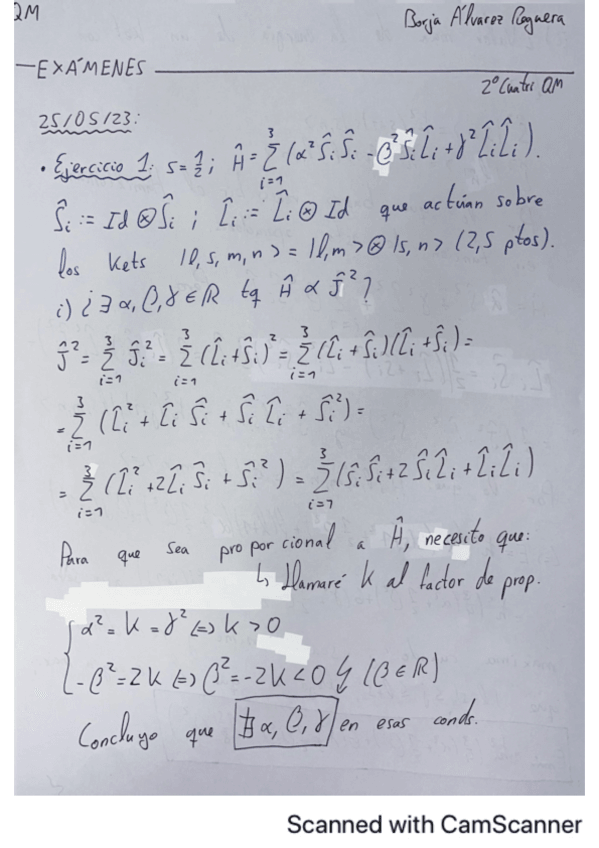 QM
Borja Álvarez Reguera
EXÁMENES
2º Cuatri QM
25/05/23:
• Ejercicio 1: s=1/2; Ĥ = Σ_{i=1}^{3} (α² Ŝi Ŝi - β² Ŝi L̂i + γ² L̂i L̂i).
Ŝi := Id ⊗ Ŝi ; L̂i := L̂i ⊗ Id que actúan sobre
los kets |l, s, m, n> = |l, m> ⊗ |s, n> (2,5 ptos).
i) ¿∃ α, β, γ ∈ ℝ tq Ĥ ∝ Ĵ²?
Ĵ² = Σ_{i=1}^{3} Ĵi² = Σ_{i=1}^{3} (L̂i + Ŝi)² = Σ_{i=1}^{3} (L̂i + Ŝi)(L̂i + Ŝi) =
= Σ_{i=1}^{3} (L̂i² + L̂i Ŝi + Ŝi L̂i + Ŝi²) =
= Σ_{i=1}^{3} (L̂i² + 2 L̂i Ŝi + Ŝi²) = Σ_{i=1}^{3} (Ŝi Ŝi + 2 Ŝi L̂i + L̂i L̂i)
Para que sea proporcional a Ĥ, necesito que:
↳ llamaré k al factor de prop.
{ α² = k = γ² ⇔ k > 0
-β² = 2k ⇔ β² = -2k < 0 ↯ (β ∈ ℝ)
Concluyo que ∄ α, β, γ en esas conds.
Scanned with CamScanner